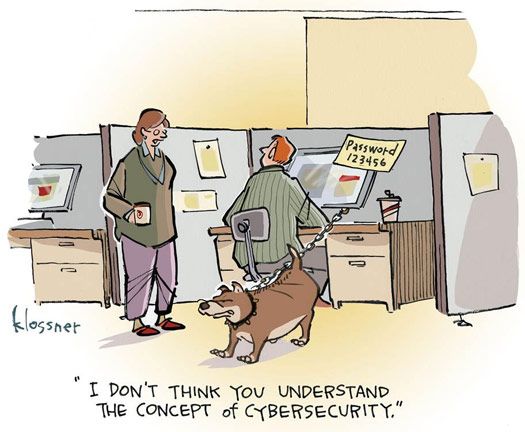 Password
123456
klossner
"I DON'T THINK YOU UNDERSTAND
THE CONCEPT of CYBERSECURITY."